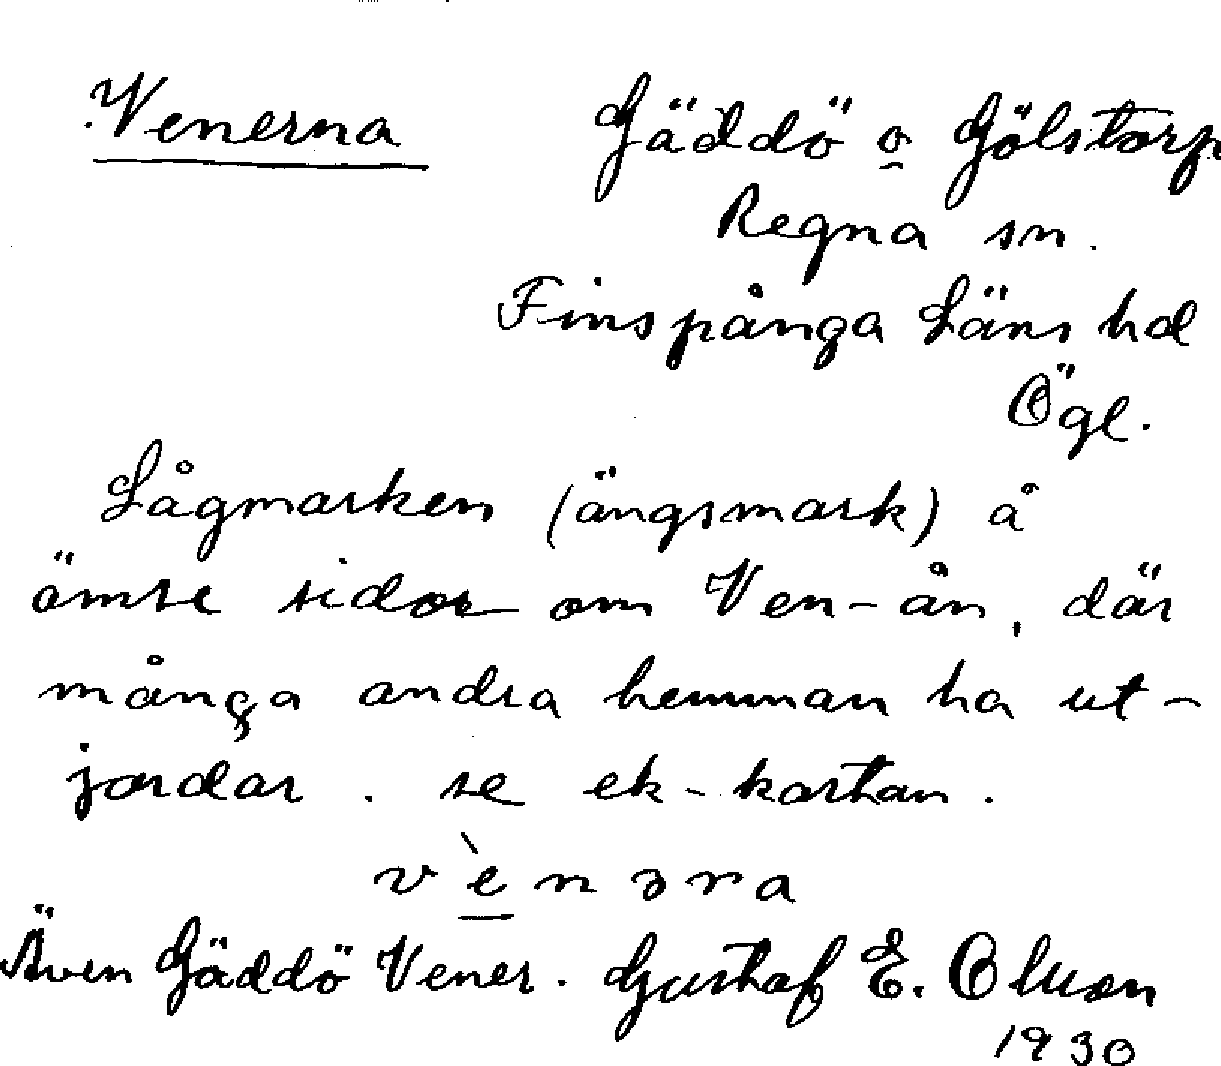 Venerna Gäddö o Gölstorp
Regna sn.
Finspånga Läns hd
Ögl.
Lågmarken (ängsmark) å
ömse sidor om Ven-ån, där
många andra hemman ha ut-
jordar. se ek-kartan.
vènəra
Även Gäddö Vener. Gustaf E.
1930